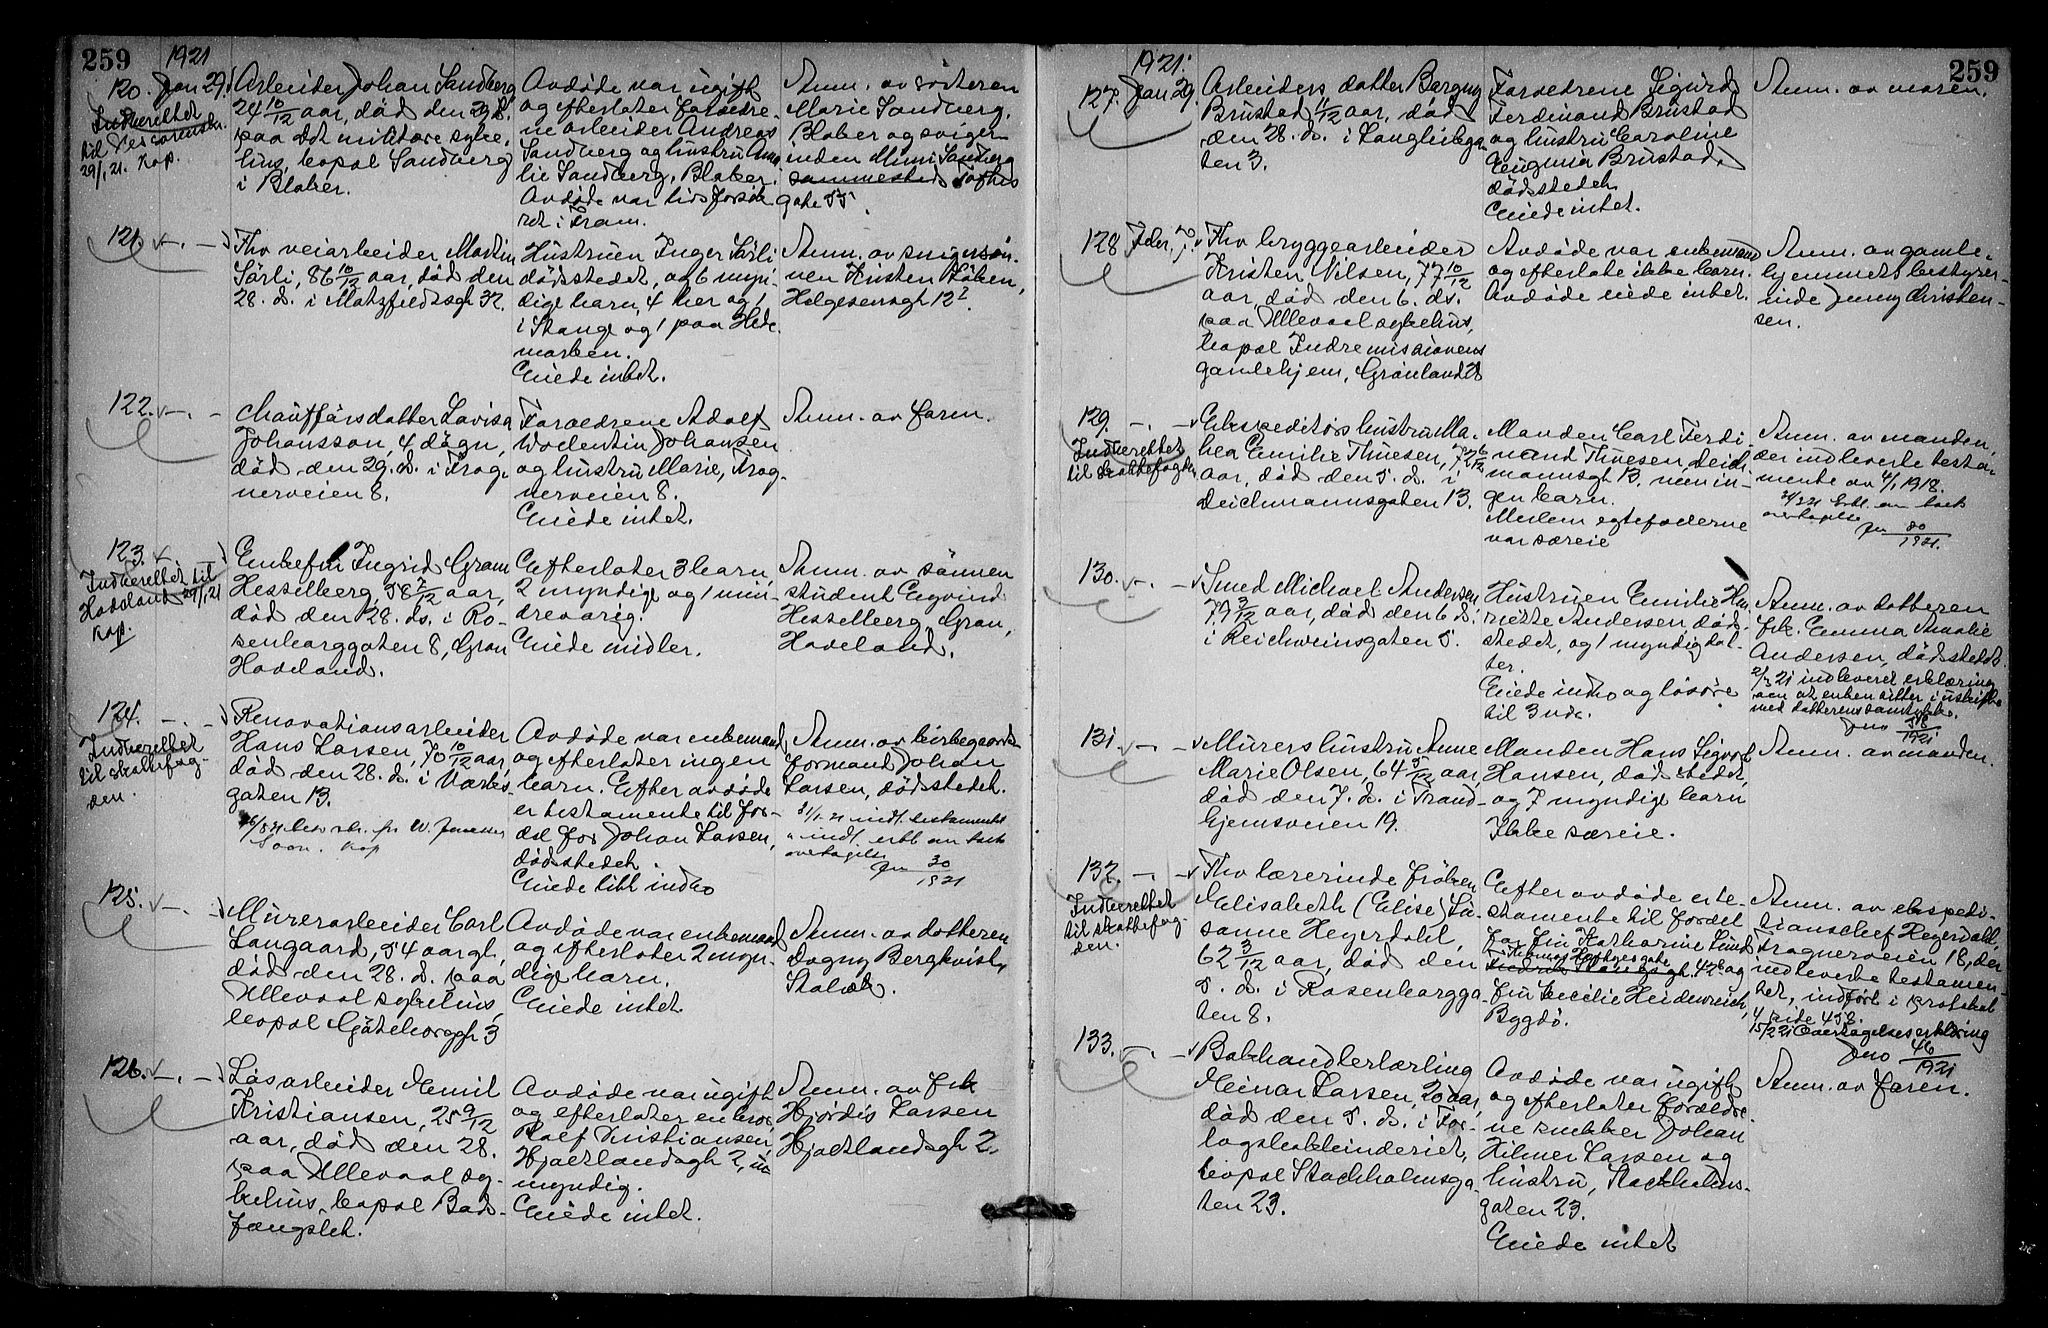 259
1921
120. Jan 29.
Indberettet
til
29/1 21. Kop.
Arbeider Johan Sandberg
24 10/12 aar, død den 29 d.
paa det militære syke-
hus, bopæl Sandberg
i Blaker.
Avdøde var ugift
og efterlater forældre-
ne arbeider Andreas
Sandberg og hustru Ama-
lie Sandberg, Blaker.
Avdøde var livsforsik-
ret i Fram.
Anm. av søsteren
Marie Sandberg,
Blaker og sviger-
inden Mimi Sandberg
sammested Sofies
gate 55.
121. -
Fhv veiarbeider Martin
Sørli, 86 10/12 aar, død den
28. d. i Matzfeldtsgt 32.
Hustruen Inger Sørli
dødsstedet, og 6 myn-
dige barn, 4 her og 1
i Stange og 1 paa Hede-
marken.
Eiede intet.
Anm. av svigersøn-
nen Kristen Støben,
Helgesensgt 12².
122. -
Chaufførs datter Lovisa
Johansson, 4 døgn,
død den 29. d. i Frog-
nerveien 8.
Forældrene Adolf
Wodentin Johansen
og hustru Marie, Frog-
nerveien 8.
Eiede intet.
Anm. av faren.
123. -
Indberettet til
Hadeland 29/1 21
Kop.
Enkefru Ingrid Gram
Hesselberg, 58 2/12 aar,
død den 28. ds. i Ro-
senborggaten 8, Gran
Hadeland.
Efterlater 3 barn,
2 myndige og 1 min-
dreaarig.
Eiede midler.
Anm. av sønnen
student Eyvind
Hesselberg, Gran,
Hadeland.
124. -
Indberettet
til skattefog-
den.
Renovationsarbeider
Hans Larsen, 70 10/12 aar,
død den 28. d. i Værks-
gaten 13.
Avdøde var enkemand
og efterlater ingen
barn. Efter avdøde
er testamente til for-
del for Johan Larsen,
dødsstedet.
Eiede litt indbo
Anm. av
formand Johan
Larsen, dødsstedet.
31/1 21 indl. testamentet
indl. erkl. om boets
overtagelse
Jno 30/1921
125. -
Murerarbeider Carl
Langaard, 54 aar gl.,
død den 28. d. paa
Ullevaal sykehus,
bopæl Gøteborggt 3
Avdøde var enkemand
og efterlater 2 myn-
dige barn.
Eiede intet.
Anm. av datteren
Dagny Bergkvist,
Stabæk.
126. -
Løsarbeider Emil
Kristiansen, 25 9/12
aar, død den 28.
paa Ullevaal sy-
kehus, bopæl Bods-
fængslet.
Avdøde var ugift
og efterlater en bror
Rolf Kristiansen,
Hjaltlandsgt 2, u-
myndig.
Eiede intet.
Anm. av frk
Hjørdis Larsen
Hjaltlandsgt 2.
259
1921.
127. Jan 29.
Arbeiders datter Bergny
Brustad 11/12 aar, død
den 28. d. i Langleikga-
ten 3.
Forældrene Sigurd
Ferdinand Brustad
og hustru Caroline
Eugenia Brustad,
dødsstedet.
Eiede intet.
Anm. av moren.
128 Febr. 7.
Fhv bryggearbeider
Kristen Nilsen, 77 10/12
aar, død den 6. ds.
paa Ullevaal sykehus,
bopæl Indremissionens
gamlehjem, Grønland 28
Avdøde var enkemand
og efterlot ikke barn.
Avdøde eiede intet.
Anm. av gamle-
hjemmets bestyrer-
inde Jenny Christen-
sen.
129. -
Indberettet
til skattefogden
Ekspeditørs hustru Ma-
hea Emilie Thuesen, 72 6/12
aar, død den 5. d. i
Deichmannsgaten 13.
Manden Carl Ferdi-
nand Thuesen, Deich-
mannsgt 13, men in-
gen barn.
Mellem egtefællerne
var særeie
Anm. av manden,
der indleverte testa-
mente av 4/1 1918.
erkl. om boets
overtagelse
Jno 20/1921.
130. -
Smed Michael Andersen
79 3/12 aar, død den 6 d.
i Reichweinsgaten 5.
Hustruen Emilie Hen-
riette Andersen død-
stedet, og 1 myndig dat-
ter.
Eiede indbo og løsøre
til 3 ndr.
Anm. av datteren
frk. Emma Amalie
Andersen, dødsstedet.
2/3 21 indleveret erklæring
om at enken sitter i uskifte
med datterens samtykke.
Jno 548/1921
131. -
Murers hustru Anne
Marie Olsen, 64 5/12 aar,
død den 7. d. i Trond-
hjemsveien 19.
Manden Hans Sigvart
Hansen, dødsstedet,
og 7 myndige barn
Ikke særeie.
Anm. av manden.
132. -
Indberettet
til skattefog-
den.
Fhv lærerinde frøken
Elisabeth (Elise) Su-
sanne Heyerdahl,
62 3/12 aar, død den
5. d. i Rosenborgga-
ten 8.
Efter avdøde er te-
stamente til fordel
for fru Katharine Lund
Thomas Heftyesgate
42 og
fru Cecilie Heidenreich,
Bygdø.
Anm. av ekspedi-
tionschef Heyerdahl,
Frognerveien 18, der
indleverte testamen-
tet, indført i protokol
4 side 458.
15/2 21 Overtagelseserklæring
Jno 46/1921
133. -
Bokhandlerlærling
Einar Larsen, 20 aar,
død den 5. d. i For-
lagsbokbinderiet,
bopæl Stockholmsga-
ten 23.
Avdøde var ugift
og efterlater forældre-
ne snekker Johan
Hilmer Larsen og
hustru, Stockholms-
gaten 23.
Eiede intet
Anm. av faren.